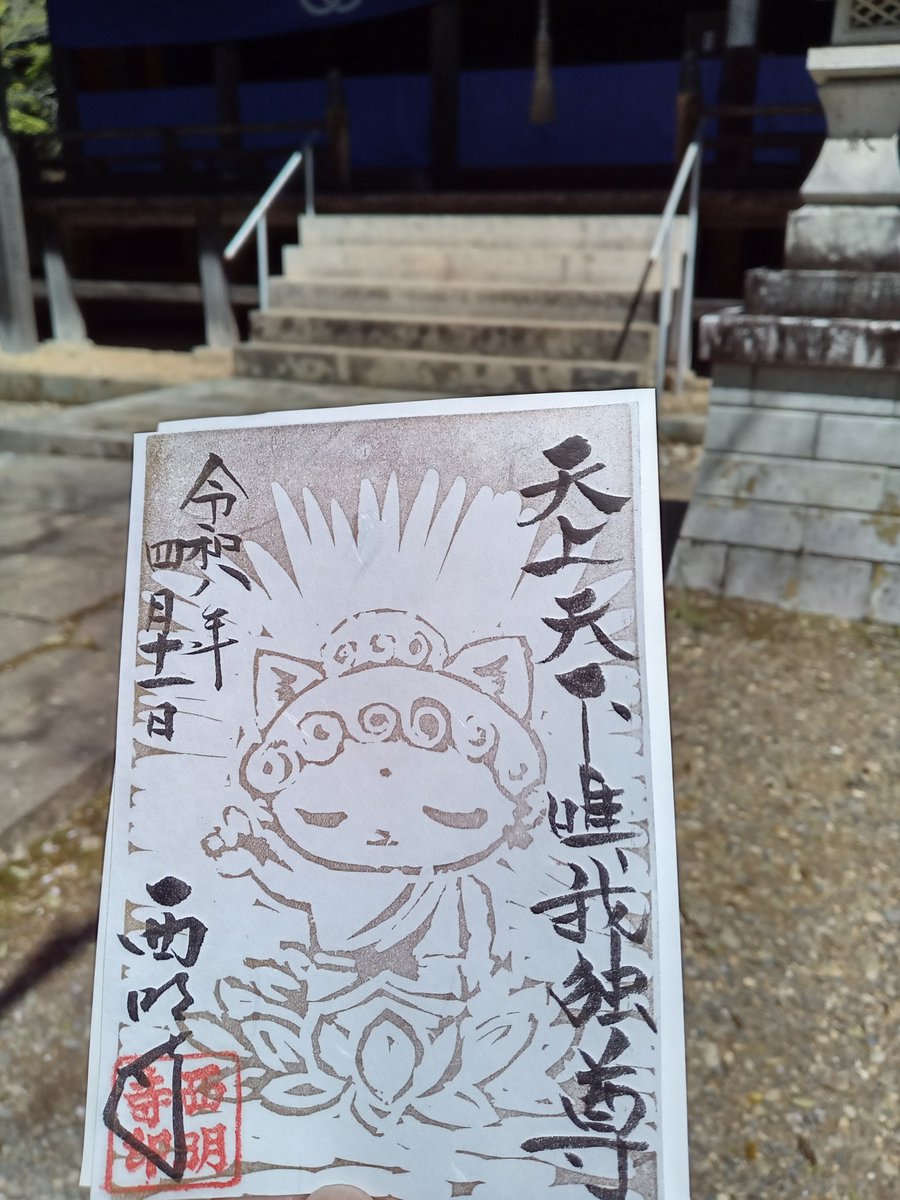 天上天下唯我独尊
令和八年
四月十一日
西明寺
西明
寺印